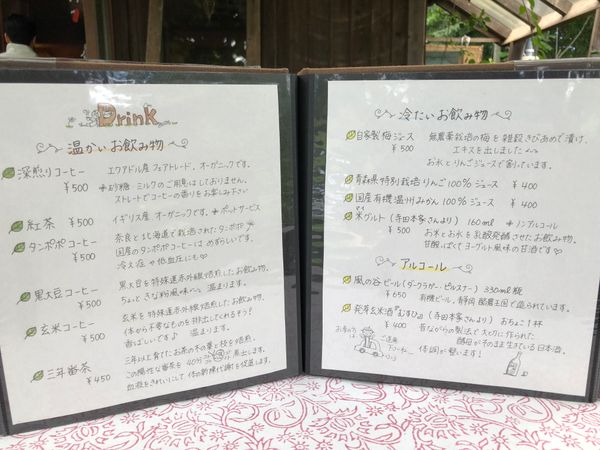 Drink
温かいお飲み物
深煎りコーヒー
¥500
エクアドル産フェアトレード、オーガニックです。
※砂糖・ミルクのご用意はしておりません。
ストレートでコーヒーの香りをお楽しみ下さい
紅茶 ¥500
イギリス産 オーガニックです。※ポットサービス
タンポポコーヒー
¥500
奈良と北海道で栽培されたタンポポ
国産のタンポポコーヒーは めずらしいです。
冷え症や低血圧にも♡
黒大豆コーヒー
¥500
黒大豆を特殊遠赤外線焙煎したお飲み物。
ちょっときな粉風味 温まります。
玄米コーヒー
¥500
玄米を特殊遠赤外線焙煎したお飲み物。
体から不要なものを排出してくれるそう!
香ばしいです♪ 温まります。
三年番茶 ¥450
三年以上育てたお茶の木の葉と枝を焙煎。
この陽性な番茶を40分 煮出します。
血液をきれいにして 体の新陳代謝を促進します。
冷たいお飲み物
自家製梅ジュース
¥500
無農薬栽培の梅を雑穀きびあめで漬け、
エキスを出しました
お水とりんごジュースで割っています。
青森県特別栽培りんご100%ジュース ¥400
国産有機温州みかん100%ジュース ¥400
米グルト(寺田本家さんより) 160ml ※ノンアルコール
¥500
お米とお水を乳酸発酵させたお飲み物。
甘酸っぱくてヨーグルト風味の甘酒です♡
アルコール
風の谷ビール(ダークラガー・ピルスナー) 330ml瓶
¥650
有機ビール。静岡 酪農王国で造られています。
発芽玄米酒"むすひ"(寺田本家さんより) おちょこ1杯
¥400
昔ながらの製法で大切に作られた
酵母が そのまま生きている日本酒。
体調が整います!
お車の方は
ご遠慮
下さいー